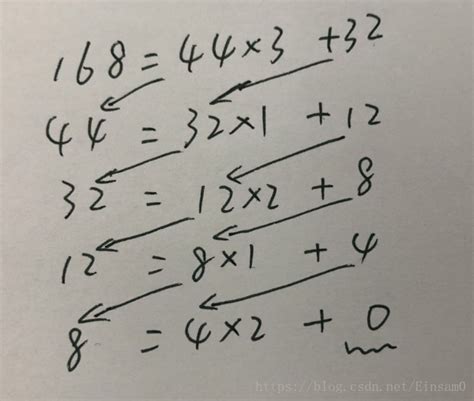 168 = 44×3 +32
44 = 32×1 + 12
32 = 12×2 + 8
12 = 8×1 + 4
8 = 4×2 + 0
https://blog.csdn.net/Einsam0